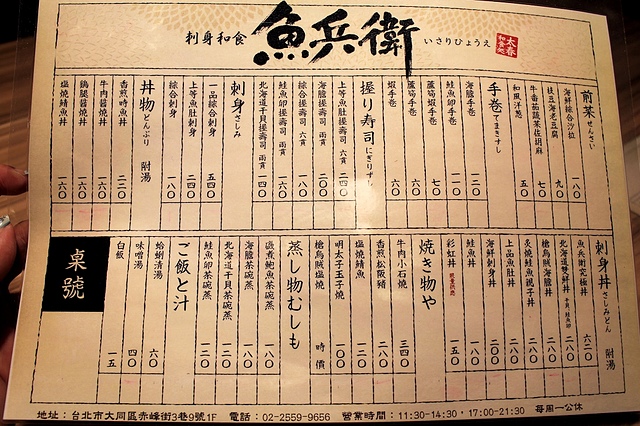 刺身和食
魚兵衛
いさりひょうえ
太春
和食処
前菜 ぜんさい
海鮮綜合沙拉 一八〇
枝豆海老豆腐 九〇
牛番茄蔬菜佐胡麻 七〇
和風洋葱 五〇
手卷 てまきすし
海膽手卷 一二〇
鮭魚卵手卷 一一〇
蘆筍蝦手卷 七〇
蘆筍手卷 六〇
蝦手卷 六〇
握り寿司 にぎりずし
上等魚肚握壽司 六貫 二四〇
海膽握壽司 六貫 二〇〇
綜合握壽司 六貫 一八〇
鮭魚卵握壽司 兩貫 一六〇
北海道干貝握壽司 兩貫 一四〇
刺身 さしみ
一品綜合刺身 五四〇
上等魚肚刺身 二四〇
綜合刺身 一八〇
丼物 どんぶり 附湯
香煎時魚丼 二二〇
牛肉醬燒丼 一六〇
鷄腿醬燒丼 一六〇
塩燒鯖魚丼 一六〇
刺身丼 さしみどん 附湯
魚兵衛究極丼 六二〇
北海道雙鮮丼 干貝、鮭魚卵 二八〇
槍烏賊海膽丼 二八〇
炙燒鮭魚親子丼 二八〇
上品魚肚丼 二八〇
海鮮刺身丼 二〇〇
鮭魚丼 一八〇
彩虹丼 一五〇
焼き物や
牛肉小石燒 三四〇
香煎松阪豬 二八〇
塩燒鯖魚 一三〇
明太子玉子燒 一〇〇
槍烏賊塩燒 時價
蒸し物むしも
海膽茶碗蒸 一八〇
北海道干貝茶碗蒸 一二〇
鮭魚卵茶碗蒸 一二〇
ご飯と汁
蛤蜊清湯 六〇
味噌湯 四〇
白飯 一五
桌號
地址：台北市大同區赤峰街3巷9號1F 電話：02-2559-9656 營業時間：11:30-14:30，17:00-21:30 每周一公休